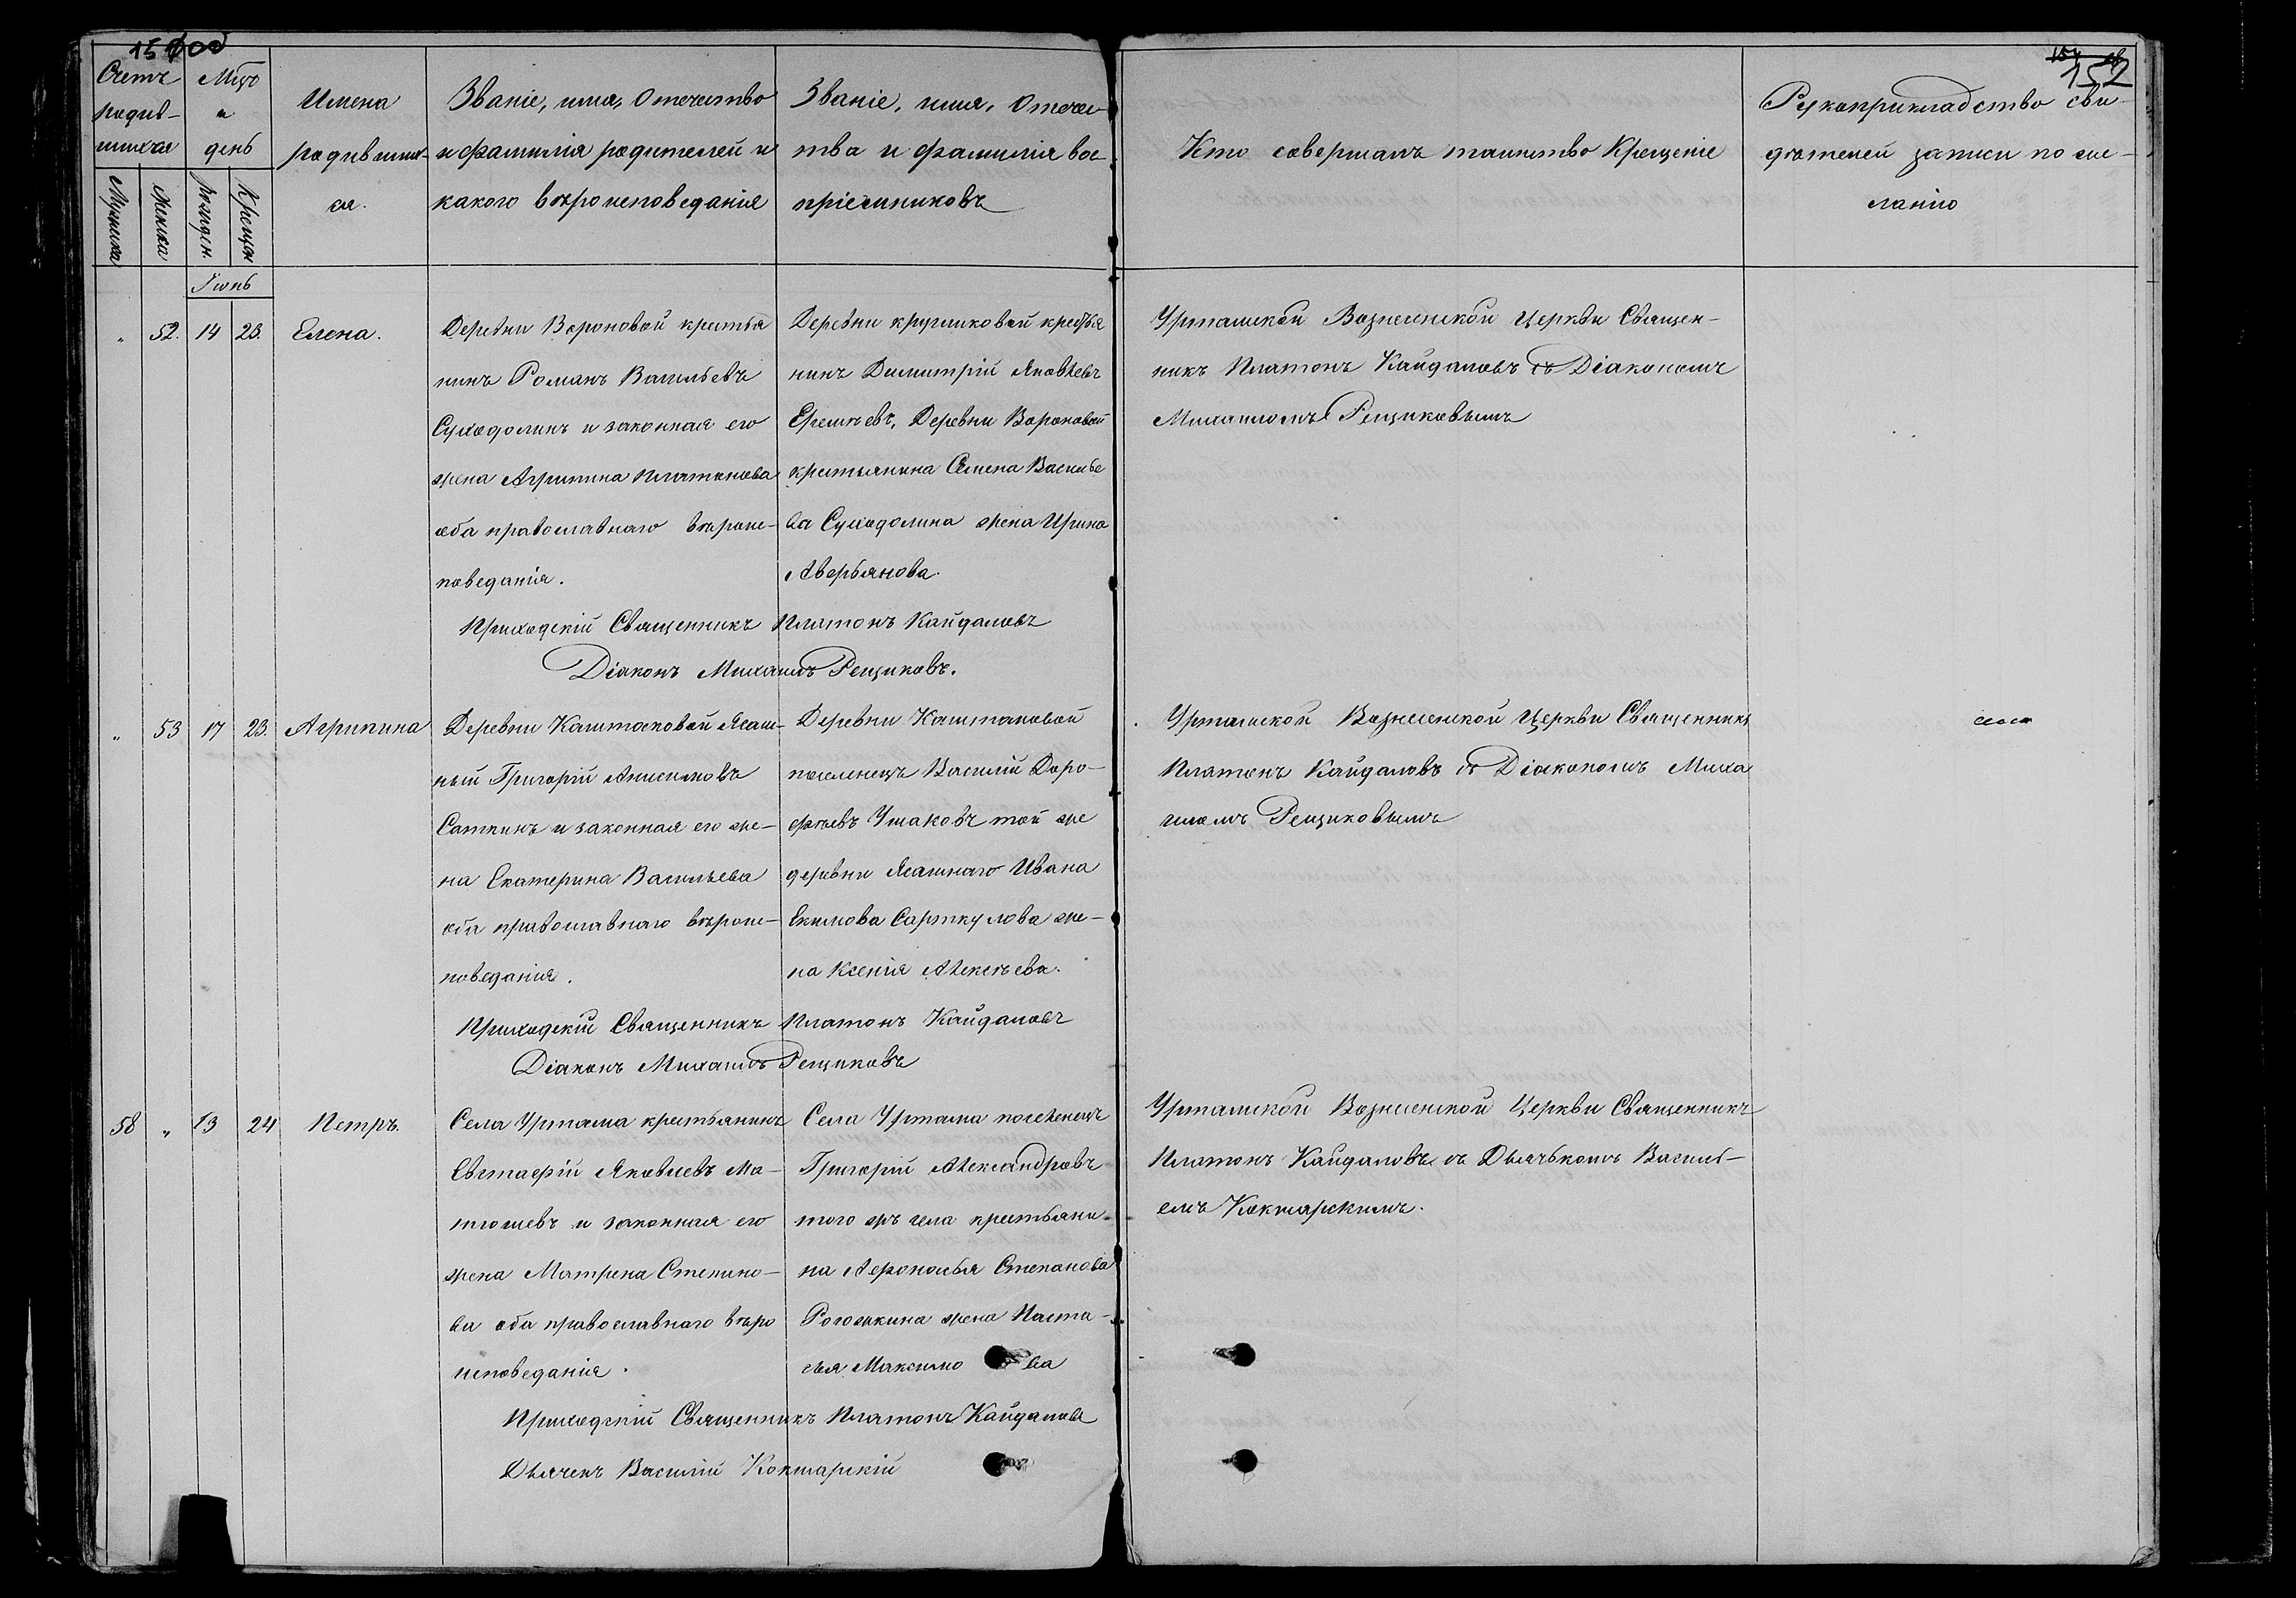 152
Счетъ родив-
шихся
Мѣсяцъ
и
день
Имена
родивших-
ся.
Званіе, имя, Отечество
и фамилія родителей и
какого вѣроисповеданія
Званіе, имя, Отечес
тва и фамилія вос
пріемниковъ
Кто совершалъ таинство Крещеніе
Рукоприкладство сви-
дѣтелей записи по же-
ланію
Мужска
Женска
Рожден.
Крещен
Іюнь
" 52. 14 23. Елена.
Деревни Вороновой крестья
нинъ Романъ Васильевъ
Суходолинъ и законная его
жена Агрипина Платонова
оба православнаго вѣроис-
поведанія.
Деревни Кругликовой крестья
нинъ Димитрій Яковлевъ
Еремѣевъ, Деревни Вороновой
крестьянина Семена Василье
ва Суходолина жена Ирина
Аверьянова.
Уртамской Вознесенской Церкви Священ-
никъ Платонъ Кайдаловъ съ Діакономъ
Михаиломъ Рещиковымъ
Приходскій Священникъ Платонъ Кайдаловъ
Діаконъ Михаилъ Рещиковъ.
" 53 17 23. Агрипина
Деревни Каштаковой Ясаш-
ный Григорій Анисимовъ
Саткинъ и законная его же-
на Екатерина Васильева
оба православнаго вѣроис-
поведанія.
Деревни Каштаковой
поселенецъ Василій Доро-
фѣевъ Ушаковъ той же
деревни Ясашнаго Ивана
Екимова Сарткулова же-
на Ксенія Алексѣева.
Уртамской Вознесенской Церкви Священникъ
Платонъ Кайдаловъ съ Діакономъ Миха
иломъ Рещиковымъ
Приходскій Священникъ Платонъ Кайдаловъ
Діаконъ Михаилъ Рещиковъ
58 " 13 24 Петръ.
Села Уртама крестьянинъ
Евстафій Яковлевъ Ма-
тюшевъ и законная его
жена Матрена Степано-
ва оба православнаго вѣро
исповеданія.
Села Уртама поселенецъ
Григорій Александровъ
того жъ села крестьяни-
на Аѳонасья Степанова
Рогожкина жена Наста-
сья Максимова
Уртамской Вознесенской Церкви Священникъ
Платонъ Кайдаловъ съ Дьячькомъ Василь-
емъ Кокшарскимъ.
Приходскій Священникъ Платонъ Кайдаловъ
Дьячекъ Василій Кокшарскій